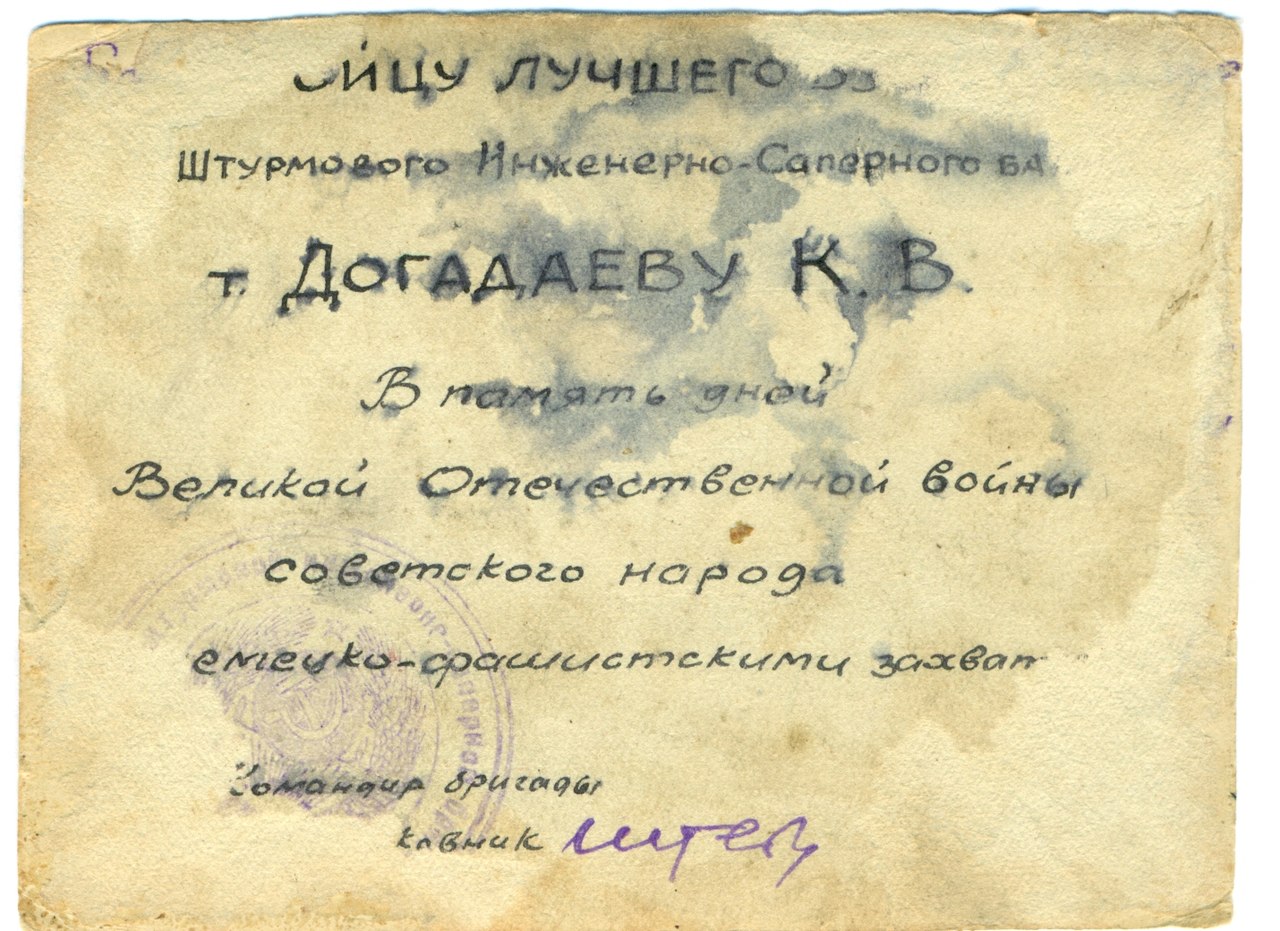 ОЙЦУ ЛУЧШЕГО ВЗ
Штурмового Инженерно-Саперного БА
т. ДОГАДАЕВУ К. В.
В память дней
Великой Отечественной войны
советского народа
емецко-фашистскими захват
Командир бригады
ковник